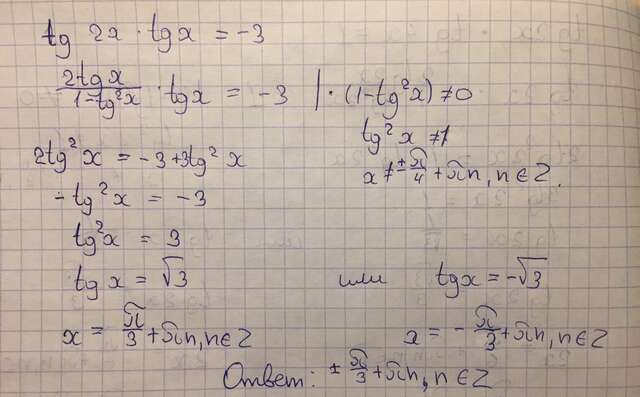 tg 2x · tgx = -3
2tgx/(1-tg²x) · tgx = -3 | · (1-tg²x) ≠ 0
tg²x ≠ 1
2tg²x = -3+3tg²x
x ≠ ±π/4 + πn, n ∈ Z.
-tg²x = -3
tg²x = 3
tgx = √3 или tgx = -√3
x = π/3 + πn, n ∈ Z x = -π/3 + πn, n ∈ Z
Ответ: ± π/3 + πn, n ∈ Z